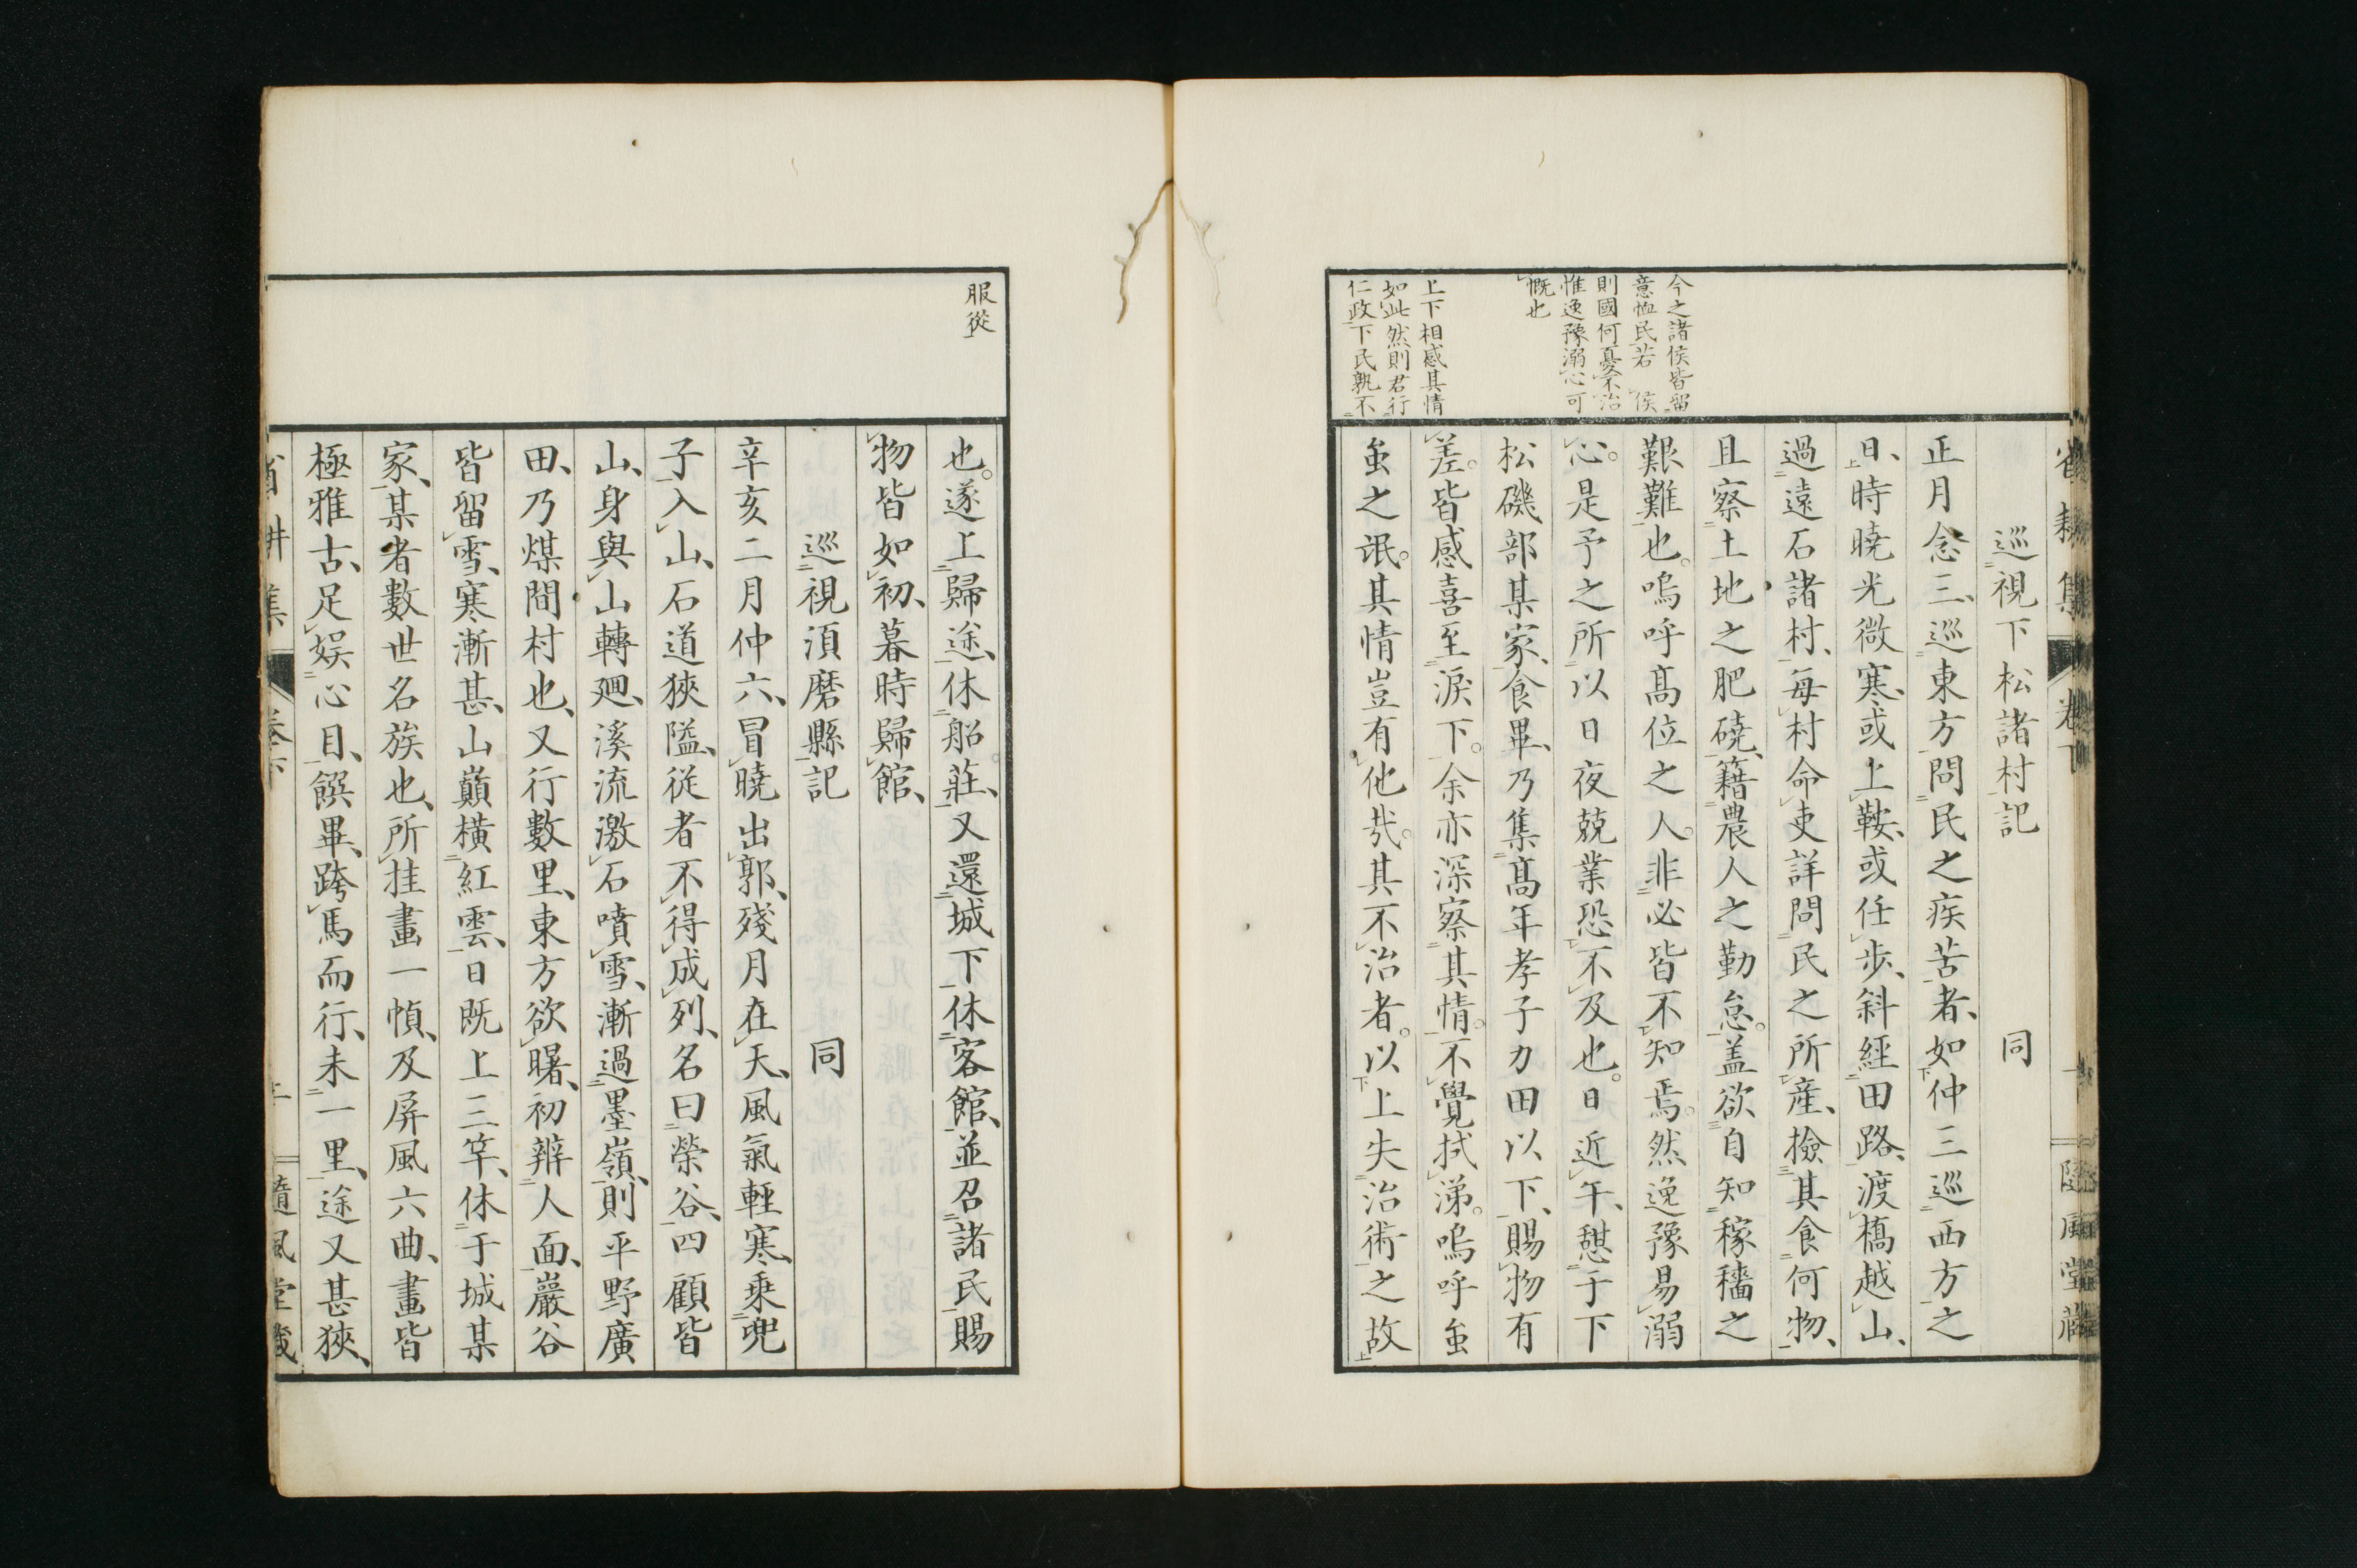 省耕集 卷下 十 隨風堂藏
今之諸侯皆留
意恤民若 侯
則國何憂不治
惟逸豫溺心可
慨也
上下相感其情
如此然則君行
仁政下民孰不
巡視下松諸村記 同
正月念三、巡東方問民之疾苦者、如仲三巡西方之
日、時曉光微寒、或上鞍、或任步、斜經田路、渡橋越山、
過遠石諸村、每村命吏詳問民之所産、撿其食何物、
且察土地之肥磽、籍農人之勤怠。盖欲自知稼穡之
艱難也。嗚呼髙位之人。非必皆不知焉。然逸豫易溺
心。是予之所以日夜兢業恐不及也。日近午、憩于下
松磯部某家、食畢、乃集髙年孝子力田以下、賜物有
差。皆感喜至淚下。余亦深察其情。不覺拭涕。嗚呼蚩
蚩之氓。其情豈有他哉。其不治者。以上失治術之故
服從
也。遂上歸途、休船莊、又還城下休客館、並召諸民賜
物皆如初、暮時歸館、
巡視須磨縣記 同
辛亥二月仲六、冒曉出郭、殘月在天、風氣輕寒、乘兜
子入山、石道狹隘、從者不得成列、名曰榮谷、四顧皆
山、身與山轉廻、溪流激石噴雪、漸過墨嶺、則平野廣
田、乃煤間村也、又行數里、東方欲曙、初辨人面、巖谷
皆留雪、寒漸甚、山巔橫紅雲、日既上三竿、休于城某
家、某者數世名族也、所挂畫一幀、及屏風六曲、畫皆
極雅古、足娯心目、饌畢、跨馬而行、未一里、途又甚狹、
省耕集 卷下 十 隨風堂藏